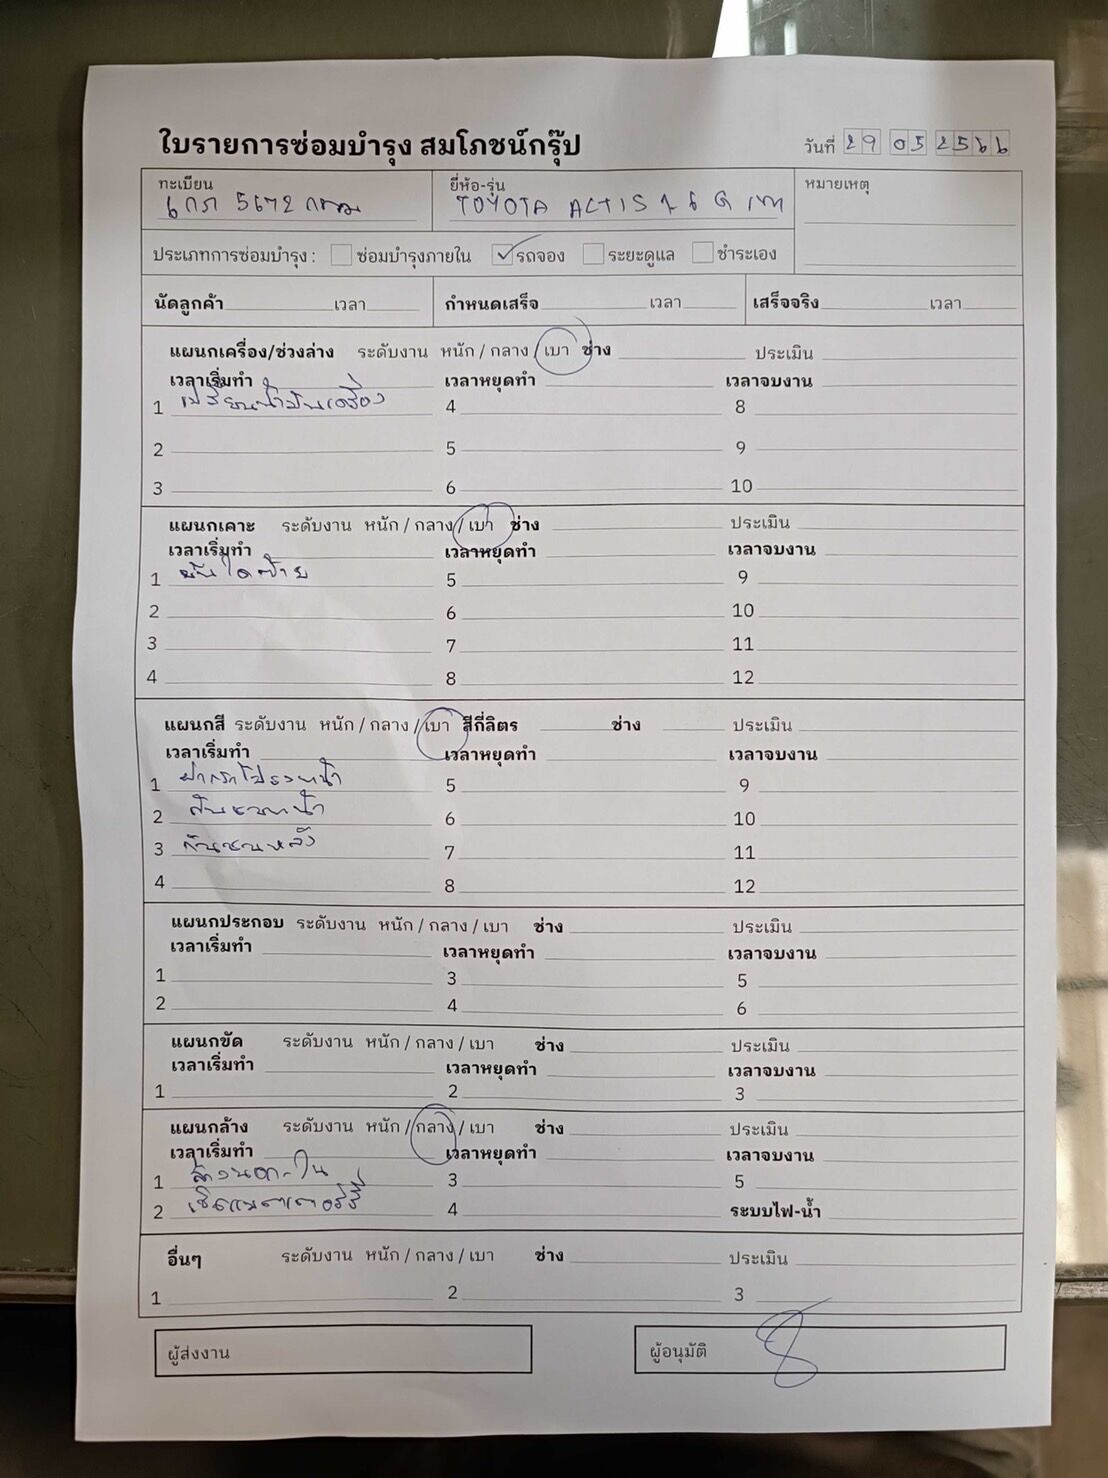 ใบรายการซ่อมบำรุง สมโภชน์กรุ๊ป
วันที่ 29 05 2566
ทะเบียน ยี่ห้อ-รุ่น หมายเหตุ
6กภ 5672 กทม TOYOTA ALTIS 1.6 G เทา
ประเภทการซ่อมบำรุง : ซ่อมบำรุงภายใน ✓ รถจอง ระยะดูแล ชำระเอง
นัดลูกค้า เวลา กำหนดเสร็จ เวลา เสร็จจริง เวลา
แผนกเครื่อง/ช่วงล่าง ระดับงาน หนัก / กลาง / เบา ช่าง ประเมิน
เวลาเริ่มทำ เวลาหยุดทำ เวลาจบงาน
1 เปลี่ยนน้ำมันเครื่อง 4 8
2 5 9
3 6 10
แผนกเคาะ ระดับงาน หนัก / กลาง / เบา ช่าง ประเมิน
เวลาเริ่มทำ เวลาหยุดทำ เวลาจบงาน
1 บันไดซ้าย 5 9
2 6 10
3 7 11
4 8 12
แผนกสี ระดับงาน หนัก / กลาง / เบา สีกี่ลิตร ช่าง ประเมิน
เวลาเริ่มทำ เวลาหยุดทำ เวลาจบงาน
1 ฝากระโปรงหน้า 5 9
2 กันชนหน้า 6 10
3 กันชนหลัง 7 11
4 8 12
แผนกประกอบ ระดับงาน หนัก / กลาง / เบา ช่าง ประเมิน
เวลาเริ่มทำ เวลาหยุดทำ เวลาจบงาน
1 3 5
2 4 6
แผนกขัด ระดับงาน หนัก / กลาง / เบา ช่าง ประเมิน
เวลาเริ่มทำ เวลาหยุดทำ เวลาจบงาน
1 2 3
แผนกล้าง ระดับงาน หนัก / กลาง / เบา ช่าง ประเมิน
เวลาเริ่มทำ เวลาหยุดทำ เวลาจบงาน
1 ล้างนอก-ใน 3 5
2 เช็คแบตเตอรี่ 4 ระบบไฟ-น้ำ
อื่นๆ ระดับงาน หนัก / กลาง / เบา ช่าง ประเมิน
1 2 3
ผู้ส่งงาน ผู้อนุมัติ